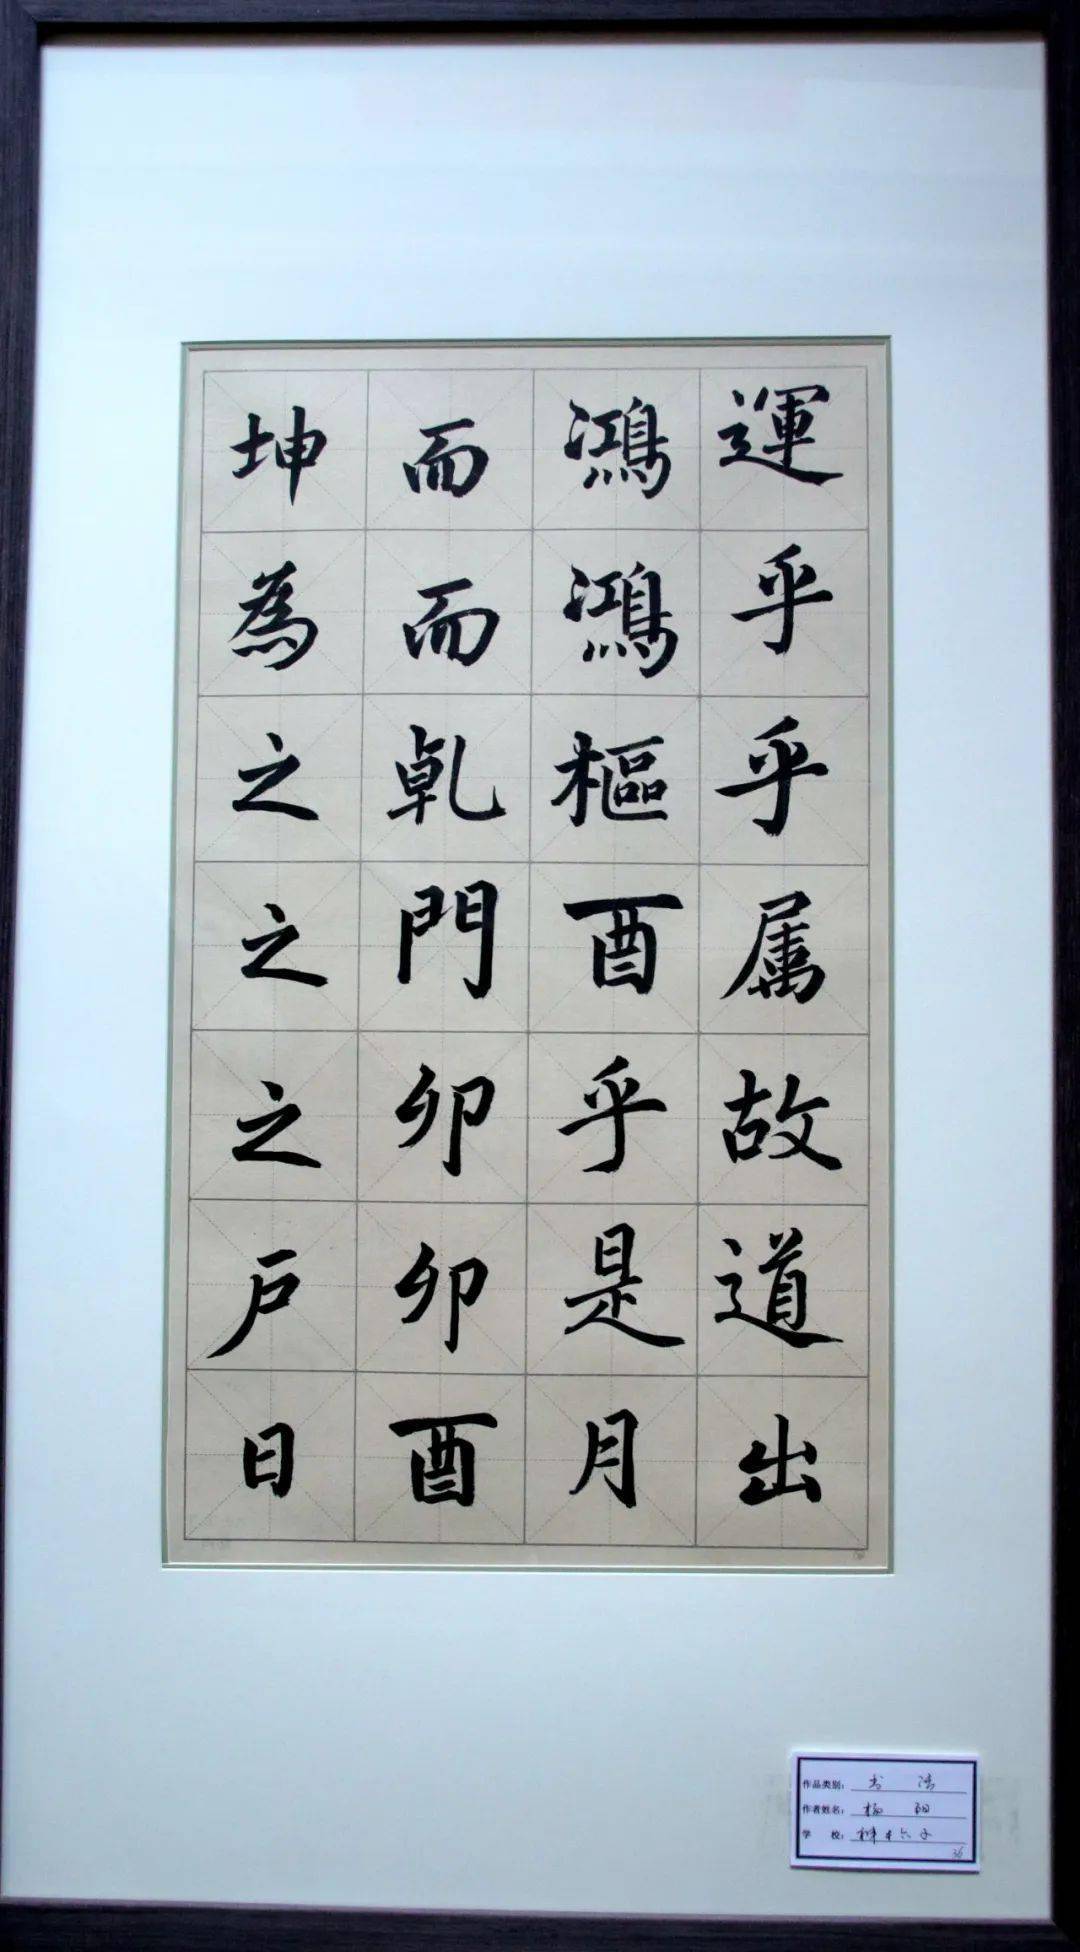 運乎乎属故道出
鴻鴻樞酉乎是月
而而乾門卯卯酉
坤為之之之戶日
作品类别：书 法
作者姓名：杨 阳
学 校：
36